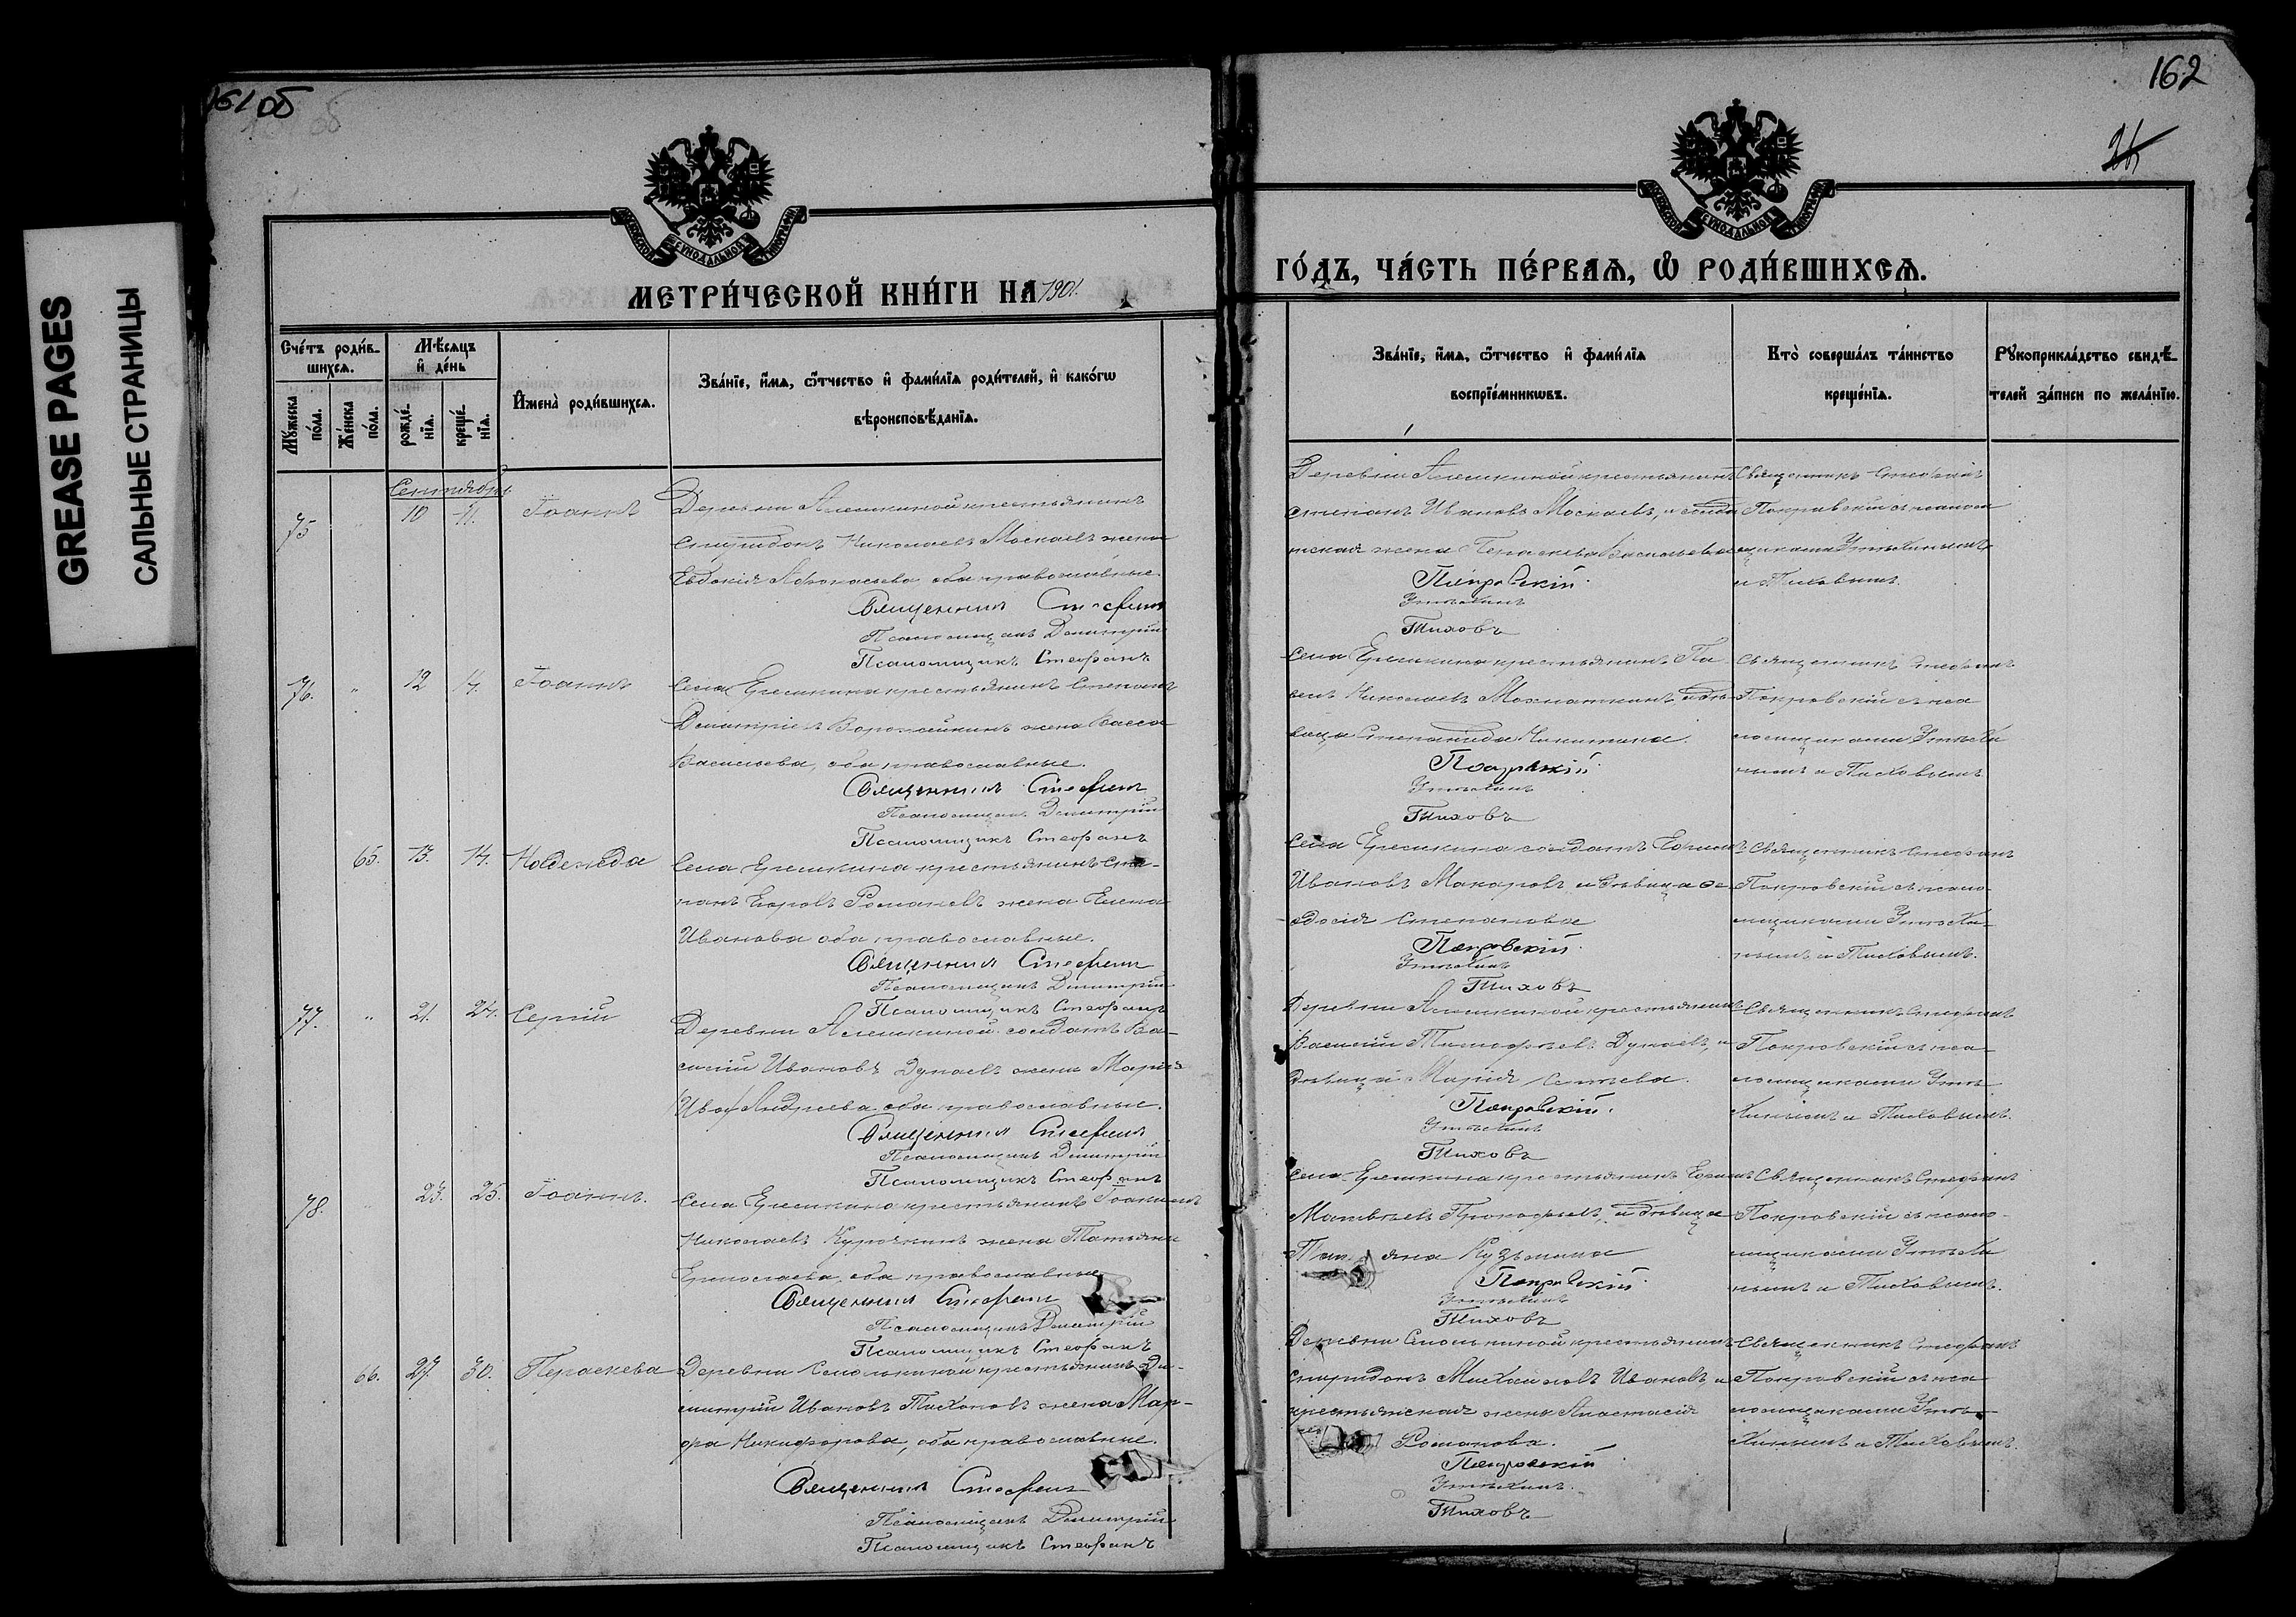 161 об
162
GREASE PAGES
САЛЬНЫЕ СТРАНИЦЫ
МЕТРИ́ЧЕСКОЙ КНИ́ГИ НА 1901.
ГО́ДЪ, ЧА́СТЬ ПЕ́РВАЯ, Ѡ҆ РОДИ́ВШИХСЯ.
Сче́тъ роди́в-
шихся.
Мꙋжеска по́ла.
Же́нска по́ла.
Мѣ́сяцъ и҆ де́нь
рожде́-нїя.
креще́-нїя.
И҆мена̀ роди́вшихся.
Зва́нїе, и҆́мя, ѻ҆́тчество и҆ фами́лїя роди́телей, и҆ како́гѡ
вѣроисповѣ́данїя.
Зва́нїе, и҆́мя, ѻ҆́тчество и҆ фами́лїя
воспрїе́мникѡвъ.
Кто̀ соверша́лъ та́инство
креще́нїя.
Рꙋкоприкла́дство свидѣ́-
телей за́писи по жела́нїю.
Сентябрь
75
10
11.
Іоаннъ
Деревни Алешкиной крестьянинъ
Спиридонъ Николаевъ Москаевъ жена
Евдокія Афонасьева, оба православные.
Священникъ Стефанъ
Псаломщикъ Димитрій
Псаломщикъ Стефанъ
Деревни Алешкиной крестьянинъ
Степанъ Ивановъ Москаевъ, и солда
тская жена Параскева Васильева
Покровскій.
Утѣхинъ
Тиховъ
Священникъ Стефанъ
Покровскій съ псалом
щиками Утѣхинымъ
и Тиховымъ.
76.
"
12
14.
Іоаннъ
Села Ерешкина крестьянинъ Степанъ
Димитріевъ Ворожейкинъ жена Васса
Васильева, оба православные.
Священникъ Стефанъ
Псаломщикъ Димитрій
Псаломщикъ Стефанъ
Села Ерешкина крестьянинъ Па
велъ Николаевъ Мохнаткинъ, и дѣ-
вица Степанида Никитина.
Покровскій.
Утѣхинъ
Тиховъ
Священникъ Стефанъ
Покровскій съ пса
ломщиками Утѣхи
нымъ и Тиховымъ
65.
13.
14.
Надежда
Села Ерешкина крестьянинъ Сте-
панъ Егоровъ Романовъ жена Елена
Иванова оба православные.
Священникъ Стефанъ
Псаломщикъ Димитрій
Псаломщикъ Стефанъ
Села Ерешкина солдатъ Ефимъ
Ивановъ Макаровъ и дѣвица Фе-
одосія Степанова
Покровскій.
Утѣхинъ
Тиховъ
Священникъ Стефанъ
Покровскій съ псало-
мщиками Утѣхи-
нымъ и Тиховымъ.
77.
"
21.
24.
Сергій
Деревни Алешкиной солдатъ Ва-
силій Ивановъ Дунаевъ жена Марія
Андреева оба православные.
Священникъ Стефанъ
Псаломщикъ Димитрій
Псаломщикъ Стефанъ
Деревни Алешкиной крестьянинъ
Василій Тимофѣевъ Дунаевъ, и
дѣвица Марія
Покровскій.
Утѣхинъ
Тиховъ
Священникъ Стефанъ
Покровскій съ пса-
ломщиками Утѣ-
хинымъ и Тиховымъ.
78.
23.
25.
Іоаннъ.
Села Ерешкина крестьянинъ Іоакимъ
Николаевъ Курочкинъ жена Татьяна
Ермолаева, оба православные
Священникъ Стефанъ
Псаломщикъ Димитрій
Псаломщикъ Стефанъ
Села Ерешкина крестьянинъ Ефимъ
Матвѣевъ Прокофьевъ, и дѣвица
Тат яна Кузьмина
Покровскій.
Утѣхинъ
Тиховъ
Священникъ Стефанъ
Покровскій съ псало-
мщиками Утѣхи
нымъ и Тиховымъ.
66.
27.
30.
Параскева
Деревни крестьянинъ Ди-
митрій Ивановъ Тихоновъ жена Мар-
фа Никифорова, оба православные.
Священникъ Стефанъ
Псаломщикъ Димитрій
Псаломщикъ Стефанъ
Деревни крестьянинъ
Спиридонъ Михайловъ Ивановъ и
крестьянская жена Анастасія
Романова.
Покровскій
Утѣхинъ.
Тиховъ
Священникъ Стефанъ
Покровскій съ пса-
ломщиками Утѣ-
хинымъ и Тиховымъ.